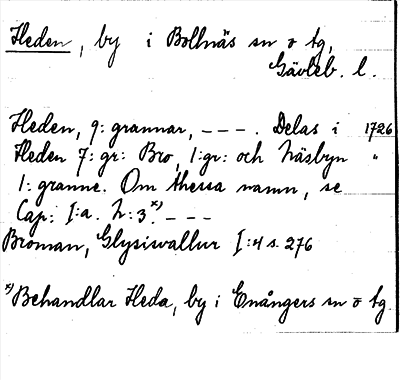 Heden, by i Bollnäs sn o tg,
Gävleb. l.
Heden, 9: grannar, - - - . Delas i 1726
Heden 7: gr: Bro, 1: gr: och Näsbyn "
1: granne. Om thessa namn, se
Cap: I:a. N:3.*) - - -
Broman, Glysisvallur I:4 s. 276
*) Behandlar Heda, by i Enångers sn o tg.